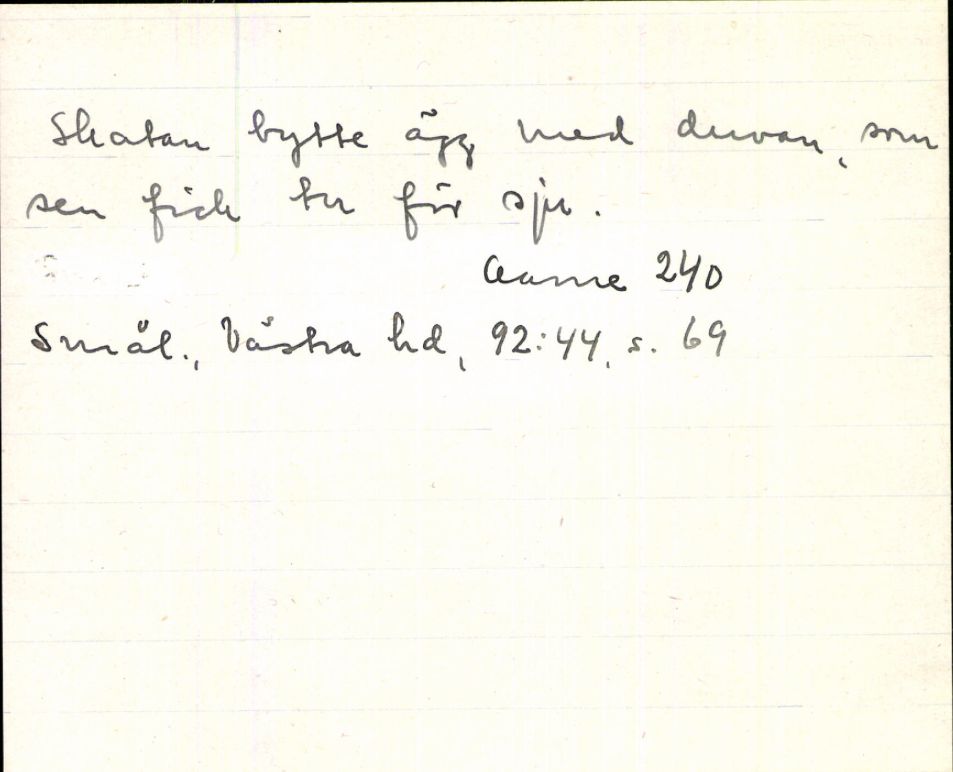 Skatan bytte ägg med duvan, som
sen fick tu för sju.
Aarne 240
Smål., Västra hd, 92:44, s. 69